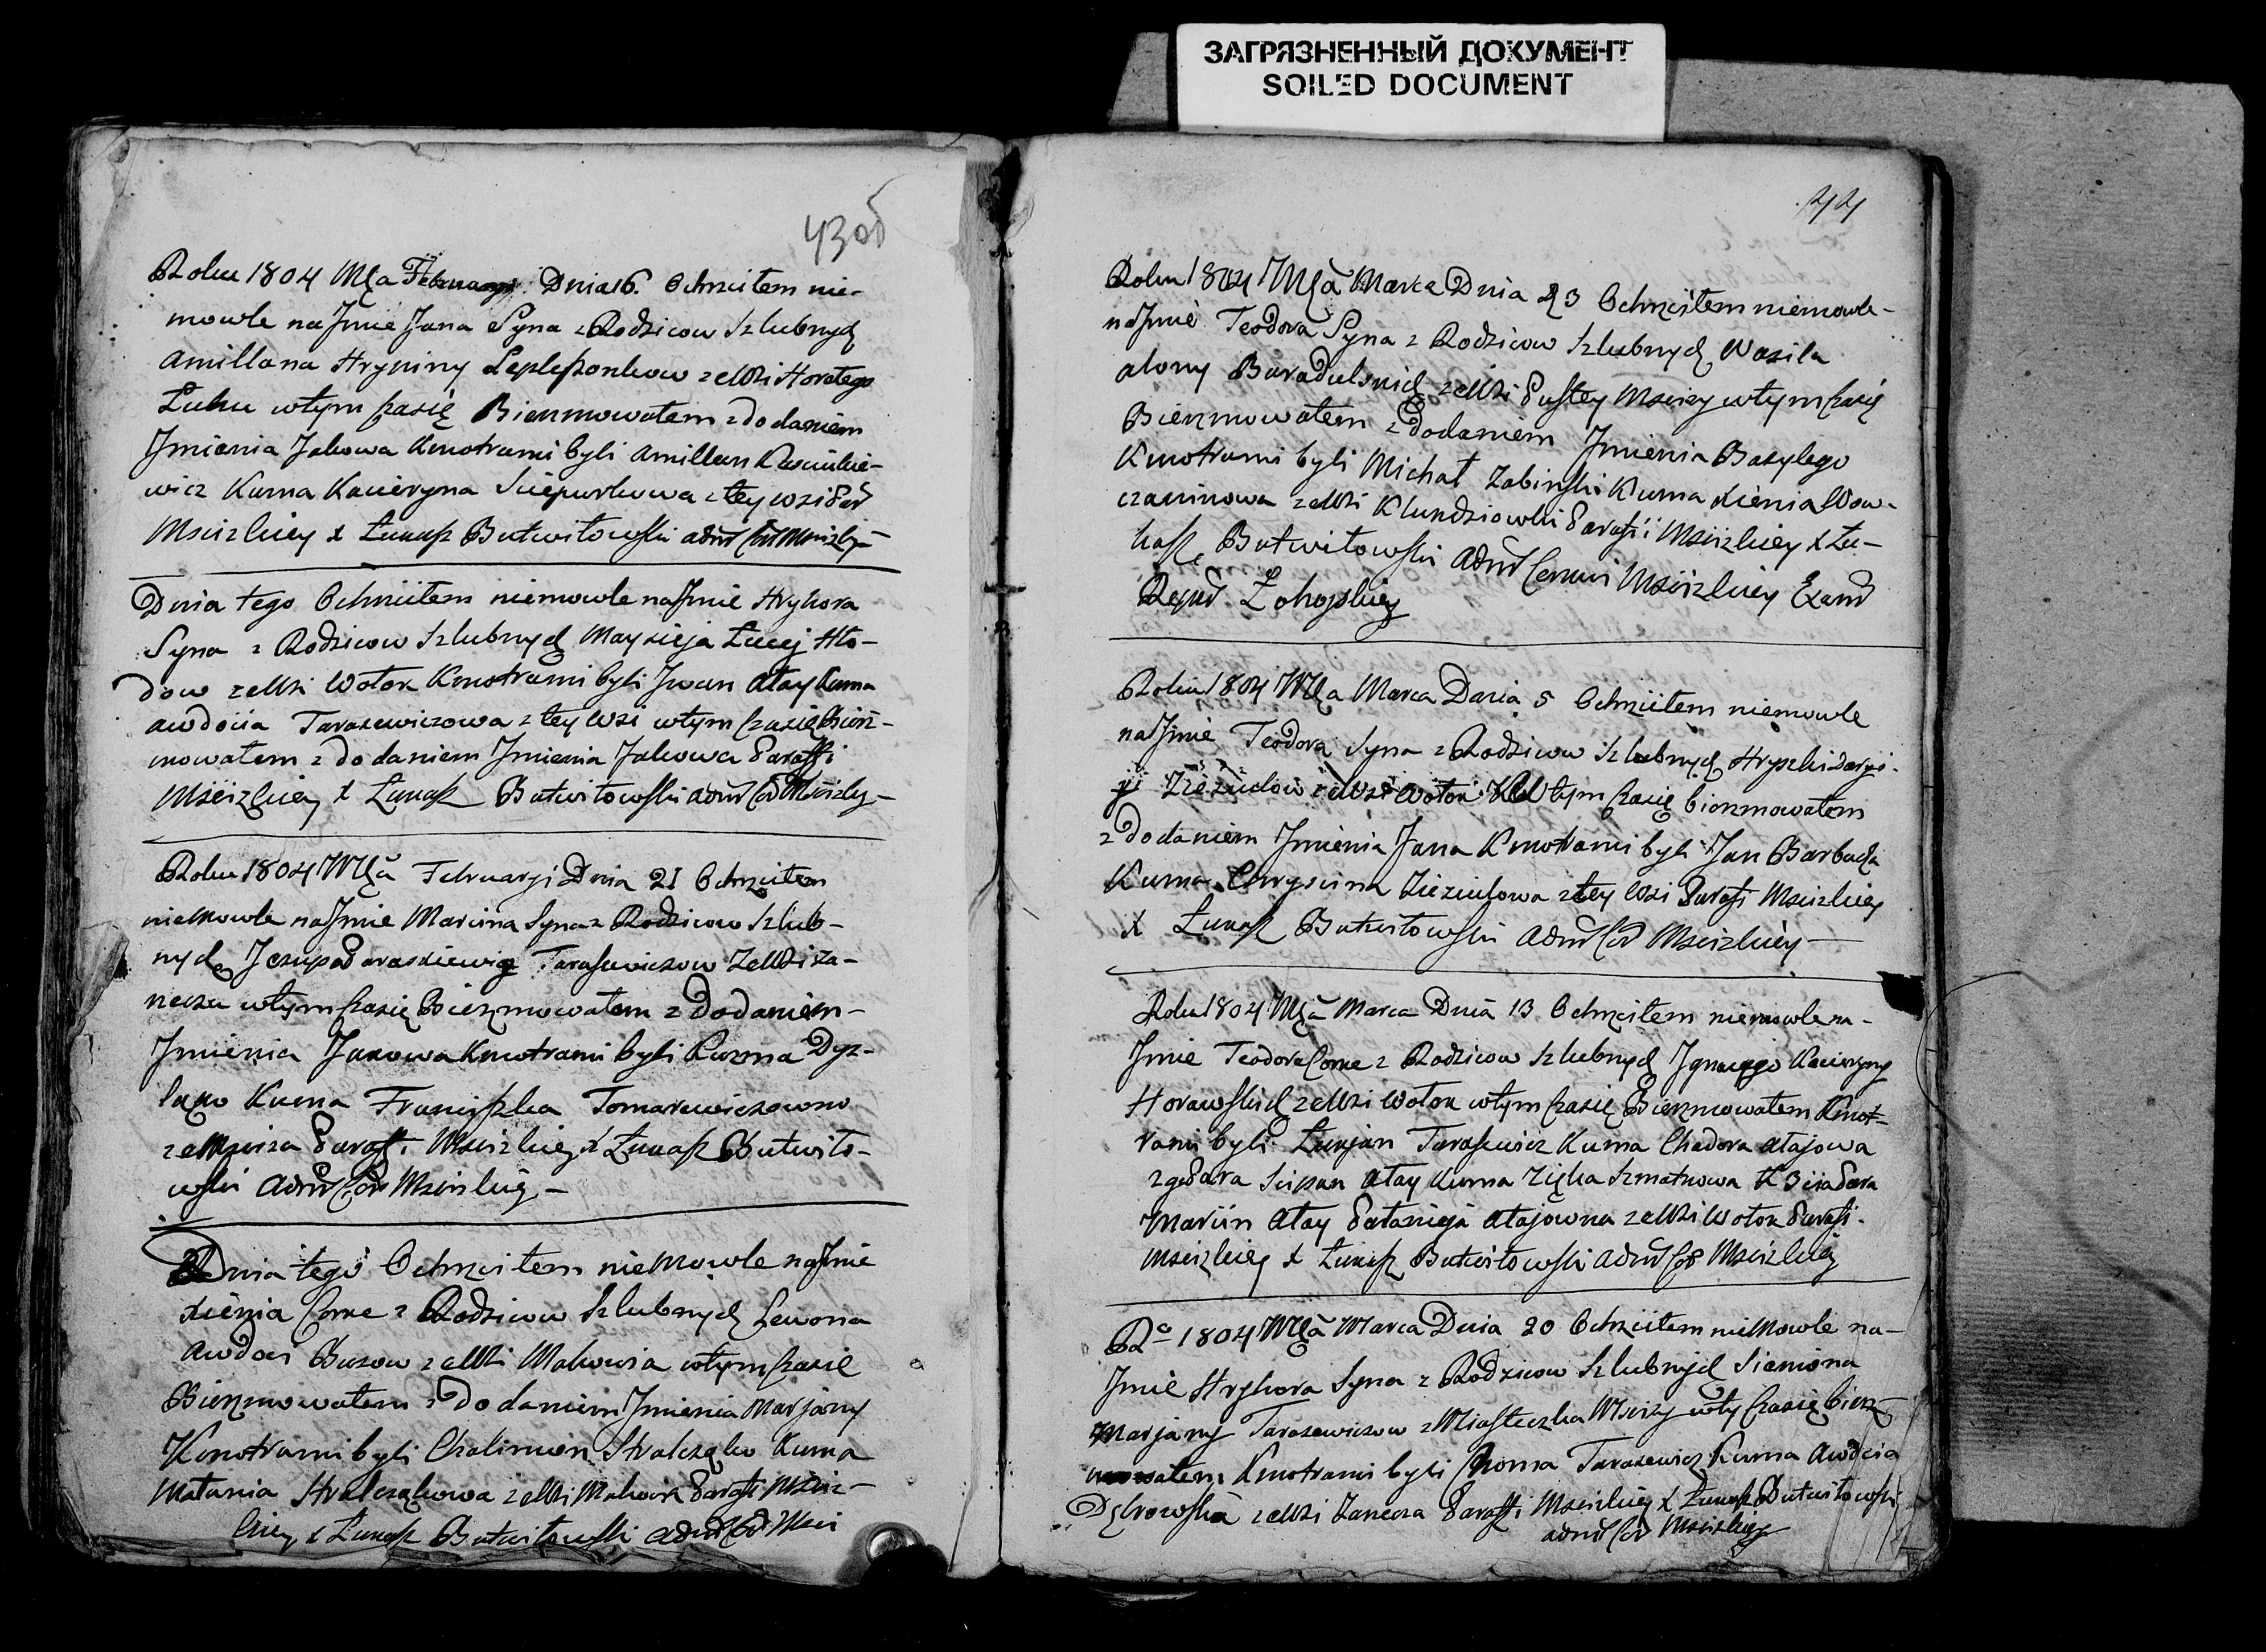 ЗАГРЯЗНЕННЫЙ ДОКУМЕНТ
SOILED DOCUMENT
43об
Roku 1804 Mca Februaryi Dnia 16. Ochrzciłem nie-
mowle na Jmie Jana Syna z Rodzicow Szlubnych
Amillana Hrypiny ze Wsi Horełego
Łuhu w tym czasię Bierzmowałem z dodaniem
Jmienia Jakowa Kmotrami byli Amillan
wicz Kuma Kacieryna z tey wsi Par
Mscizkiey x Łukasz Butwiłowski adm
Dnia tego Ochrzciłem niemowle na Jmie Hryhora
Syna z Rodzicow Szlubnych Maysieja Łucej Hło-
dow ze Wsi Wołok Kmotrami byli Jwan Ałay Kuma
Awdocia Tarasewiczowa z tey Wsi w tym czasię Bierz-
mowałem z dodaniem Jmienia Jakowa Parafi
Mscizkiey x Łukasz Butwiłowski adm
Roku 1804 Mca Februaryi Dnia 21 Ochrzciłem
niemowle na Jmie Marcina Syna z Rodzicow Szlub-
nych Tarasewiczow ze Wsi Za-
necza w tym czasię Bierzmowałem z Dodaniem
Jmienia Jakowa Kmotrami byli Kuzma Dyz-
Kuma Franciszka
Parafi Mscizkiey x Łukasz Butwiło-
wski adm Mscizkiey
Dnia tego Ochrzciłem niemowle na Jmie
Xienia Corke z Rodzicow Szlubnych Lewona
Awdoci Busow ze Wsi Makowia w tym czasie
Bierzmowałem z dodaniem Jmienia Marjany
Kmotrami byli Chalimon Kuma
Matania ze Wsi Makowia Parafi Msciz-
kiey x Łukasz Butwiłowski adm Msci
44
Roku 1804 Mca Marca Dnia 23 Ochrzciłem niemowle
na Jmie Teodora Syna z Rodzicow Szlubnych Wasila
Alony ze Wsi Pustey Mscizy w tym czasię
Bierzmowałem z Dodaniem Jmienia Bazylego
Kmotrami byli Michał Zabinski Kuma Xienia Wow-
czaninowa ze Wsi Klundziowki Parafii Mscizkiey x Łu-
kasz Butwiłowski Adm Cerkwi Mscizkiey
Łohojskiey
Roku 1804 Mca Marca Dnia 5 Ochrzciłem niemowle
na Jmie Teodora Syna z Rodzicow Szlubnych Hryszki
ze Wsi Wołok W tym czasię bierzmowałem
z dodaniem Jmienia Jana Kmotrami byli Jan
Kuma z tey Wsi Parafi Mscizkiey
x Łukasz Butwiłowski Adm Mscizkiey
Roku 1804 Mca Marca Dnia 13 Ochrzciłem niemowle na
Jmie Teodora Corke z Rodzicow Szlubnych Jgnacego Kacieryny
Horawskich ze Wsi Wołok w tym czasię Bierzmowałem Kmot-
rami byli Łukjan Tarasewicz Kuma Chadora Ałajowa
2ga Para Sciepan Ałay Kuma Szmatkowa 3cia Para
Marcin Ałay Pałanieja Ałajowna ze Wsi Wołok Parafi
Mscizkiey x Łukasz Butwiłowski adm Mscizkiey
Ro 1804 Mca Marca Dnia 20 Ochrzciłem niemowle na
Jmie Hryhora Syna z Rodzicow Szlubnych Siemiona
Marjany Tarasewiczow z Miasteczka Mscizy w ty czasię bierz-
mowałem Kmotrami byli Choma Tarasewicz Kuma Awdocia
Dąbrowska ze Wsi Zanecza Parafi Mscizkiey x Łukasz Butwiłowski
adm Mscizkiey